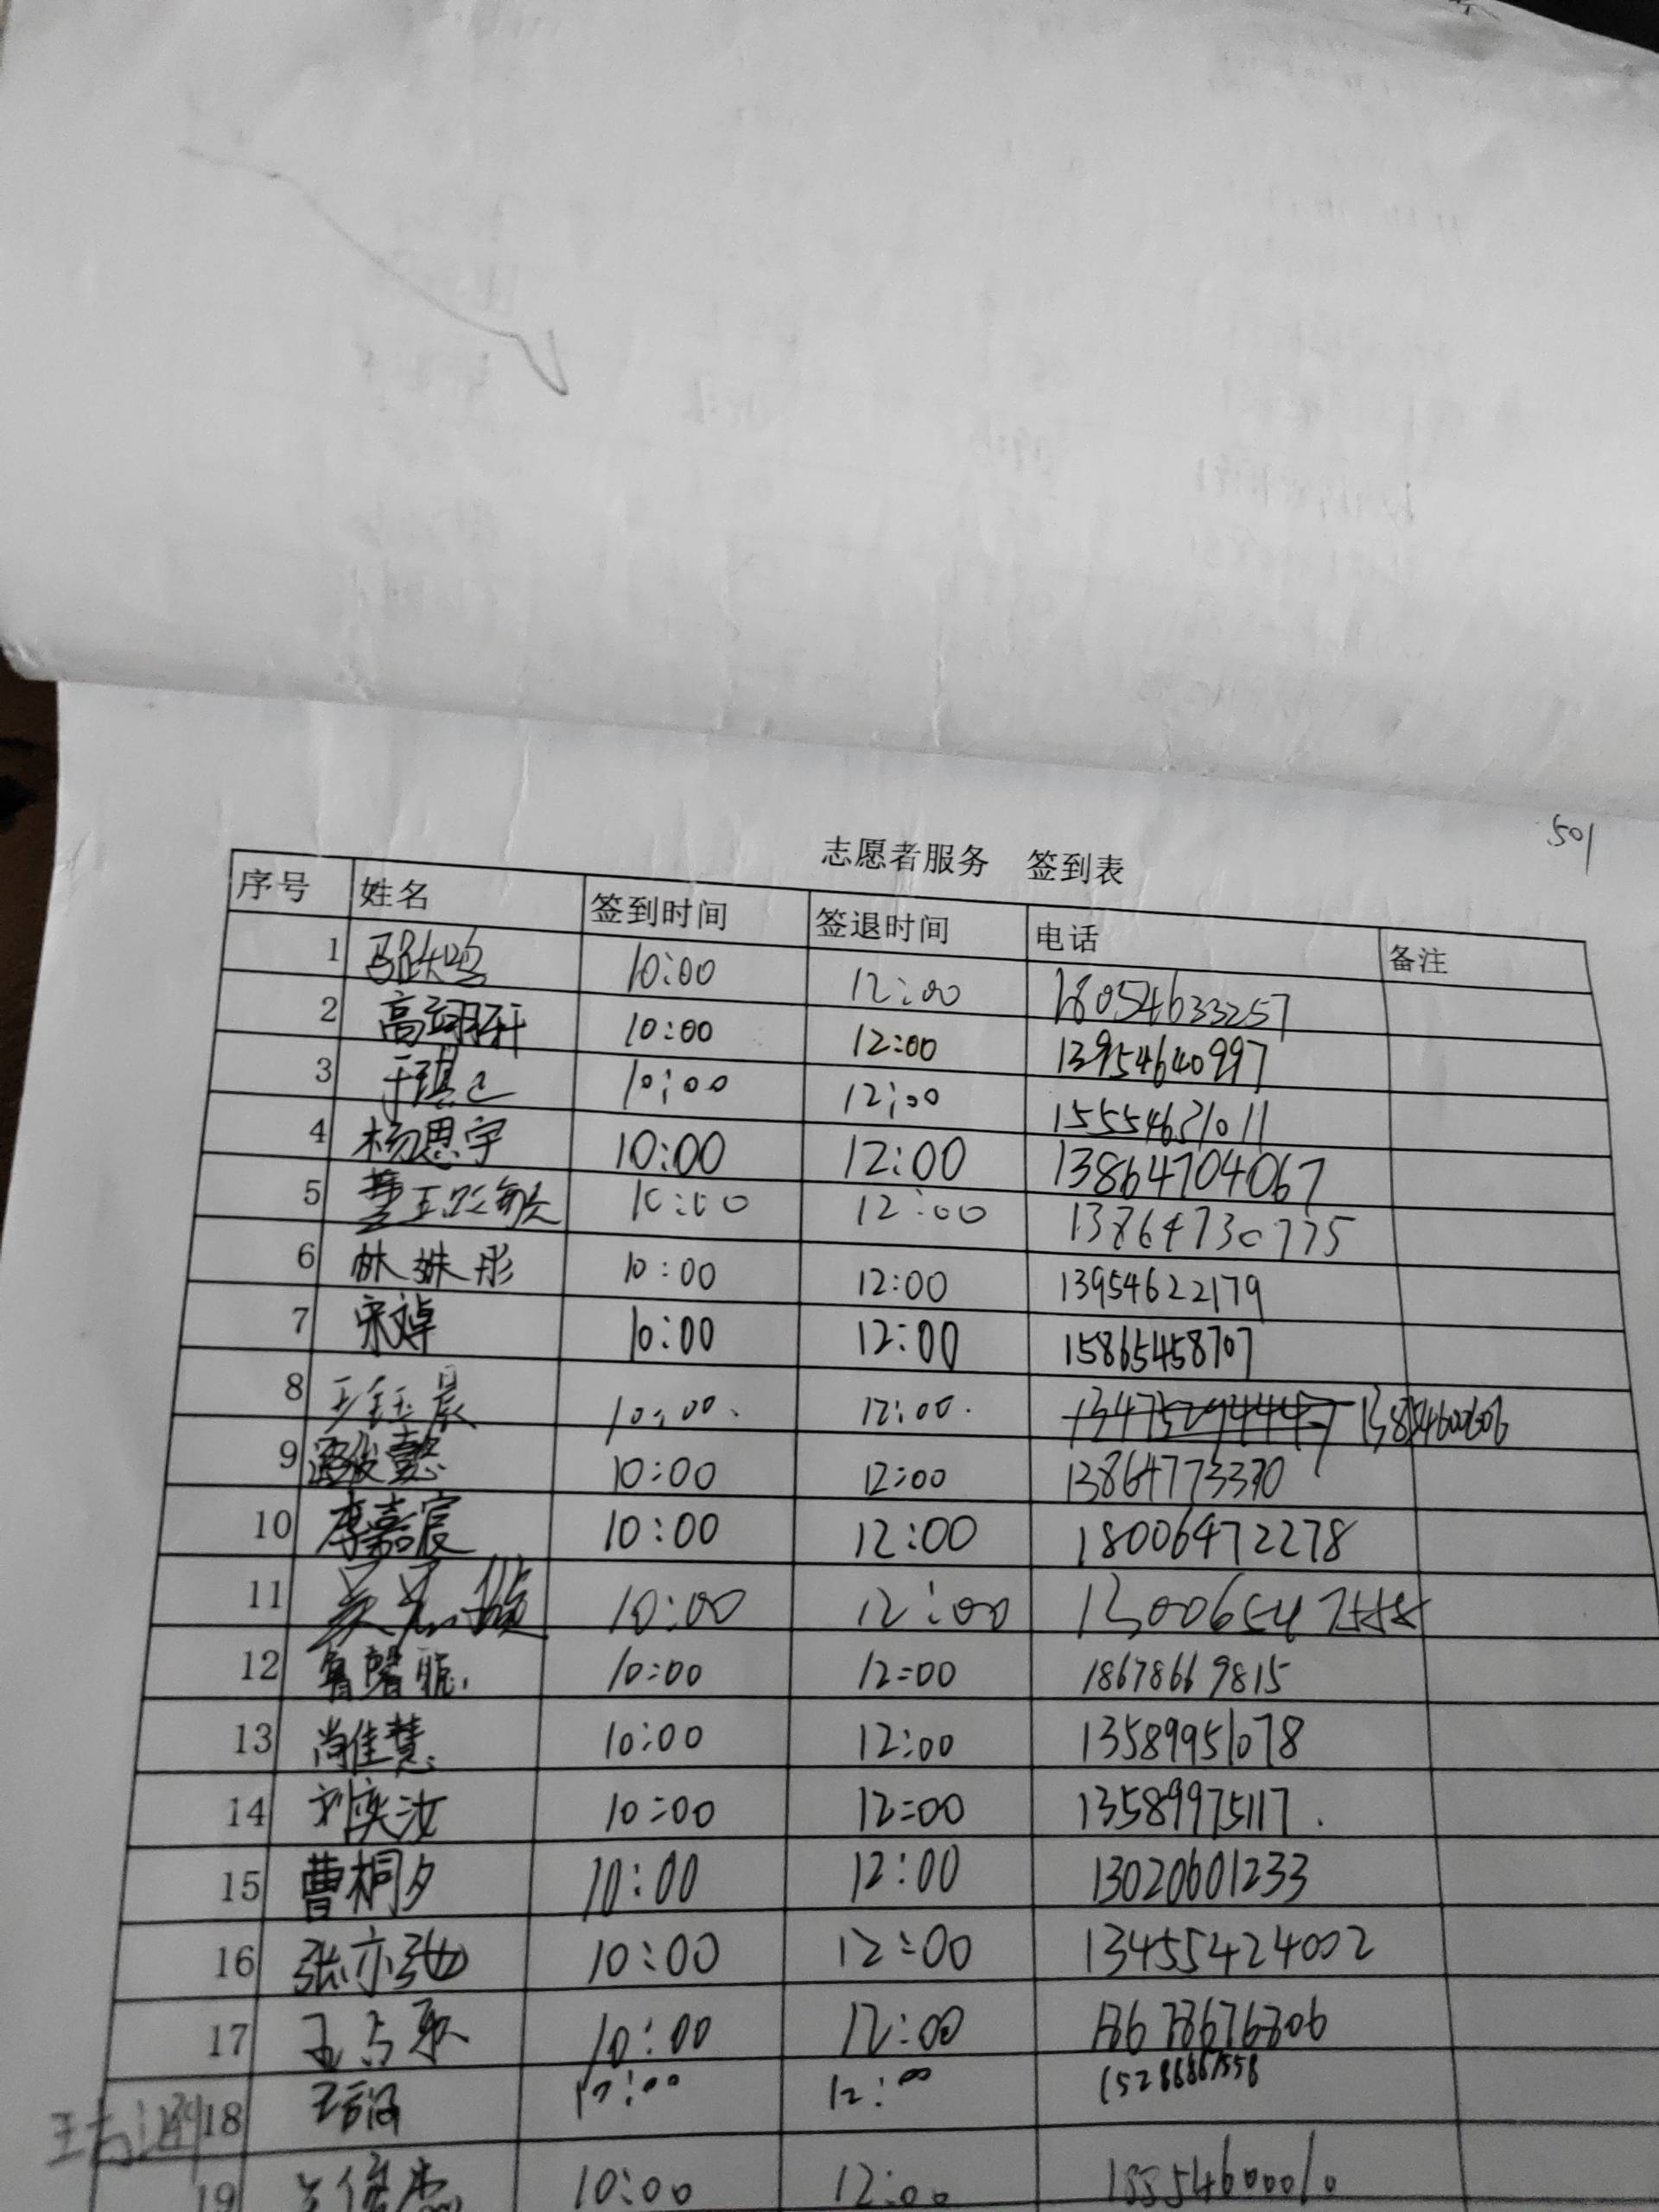 501
志愿者服务 签到表
序号 姓名 签到时间 签退时间 电话 备注
1 10:00 12:00 18054633257
2 高翊轩 10:00 12:00 13954640997
3 于琪 10:00 12:00 15554631011
4 杨思宇 10:00 12:00 13864704067
5 10:00 12:00 13864730775
6 林姝彤 10:00 12:00 13954622179
7 宋焯 10:00 12:00 15865458707
8 王钰晨 10:00 12:00
9 10:00 12:00 13864773370
10 李嘉宸 10:00 12:00 18006472278
11 10:00 12:00
12 10:00 12:00 18678669815
13 尚佳慧 10:00 12:00 13589951078
14 刘奕汝 10:00 12:00 13589975117.
15 曹桐夕 10:00 12:00 13020601233
16 张亦弛 10:00 12:00 13455424002
17 10:00 12:00 18678676306
18 10:00 12:00
19 10:00 12:00